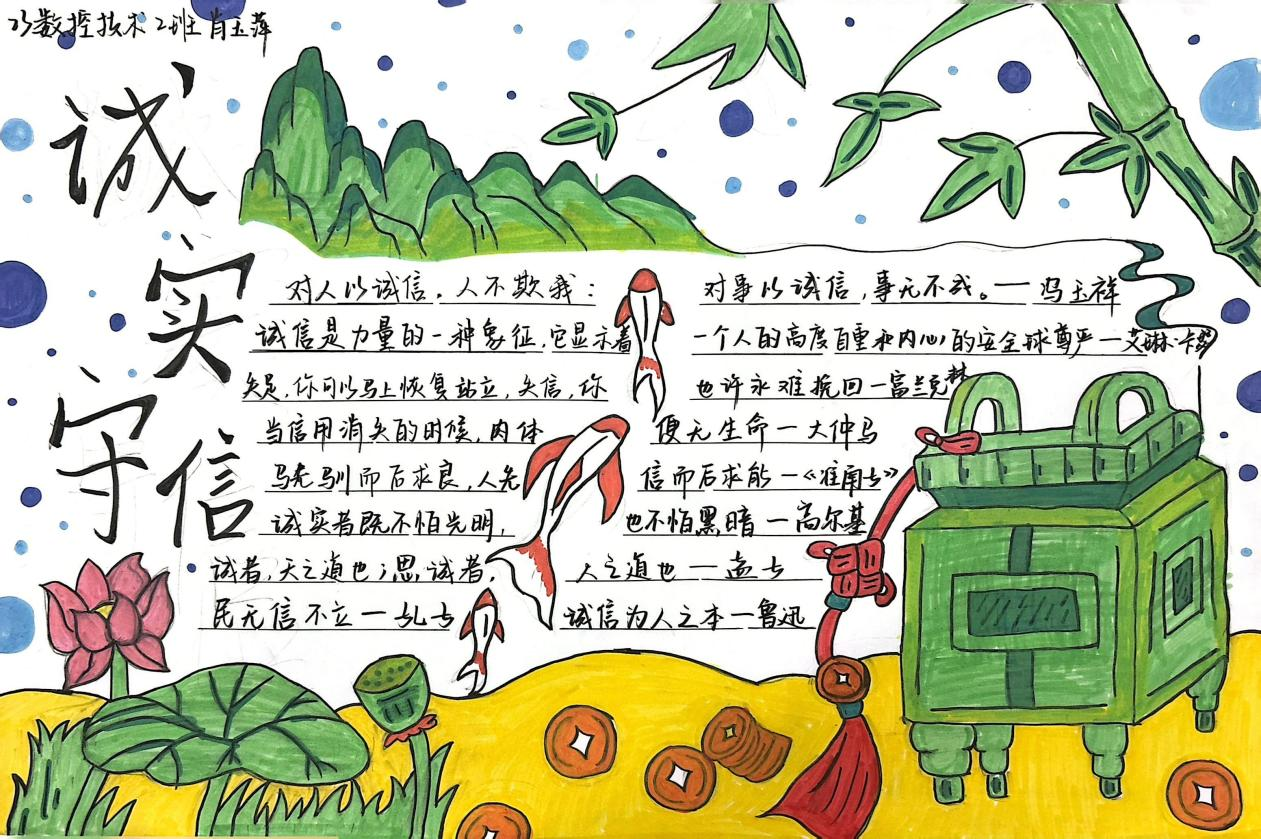 23数控技术2班 肖玉萍
诚实
守信
对人以诚信，人不欺我： 对事以诚信，事无不成。一冯玉祥
诚信是力量的一种象征，它显示着 一个人的高度自重和内心的安全球尊严一艾琳·卡瑟
失足，你可以马上恢复站立，失信，你 也许永难挽回一富兰克林
当信用消失的时候，肉体 便无生命一大仲马
马先驯而后求良，人先 信而后求能一《淮南子》
诚实者既不怕光明， 也不怕黑暗一高尔基
诚者，天之道也；思诚者， 人之道也一孟子
民无信不立一孔子 诚信为人之本一鲁迅